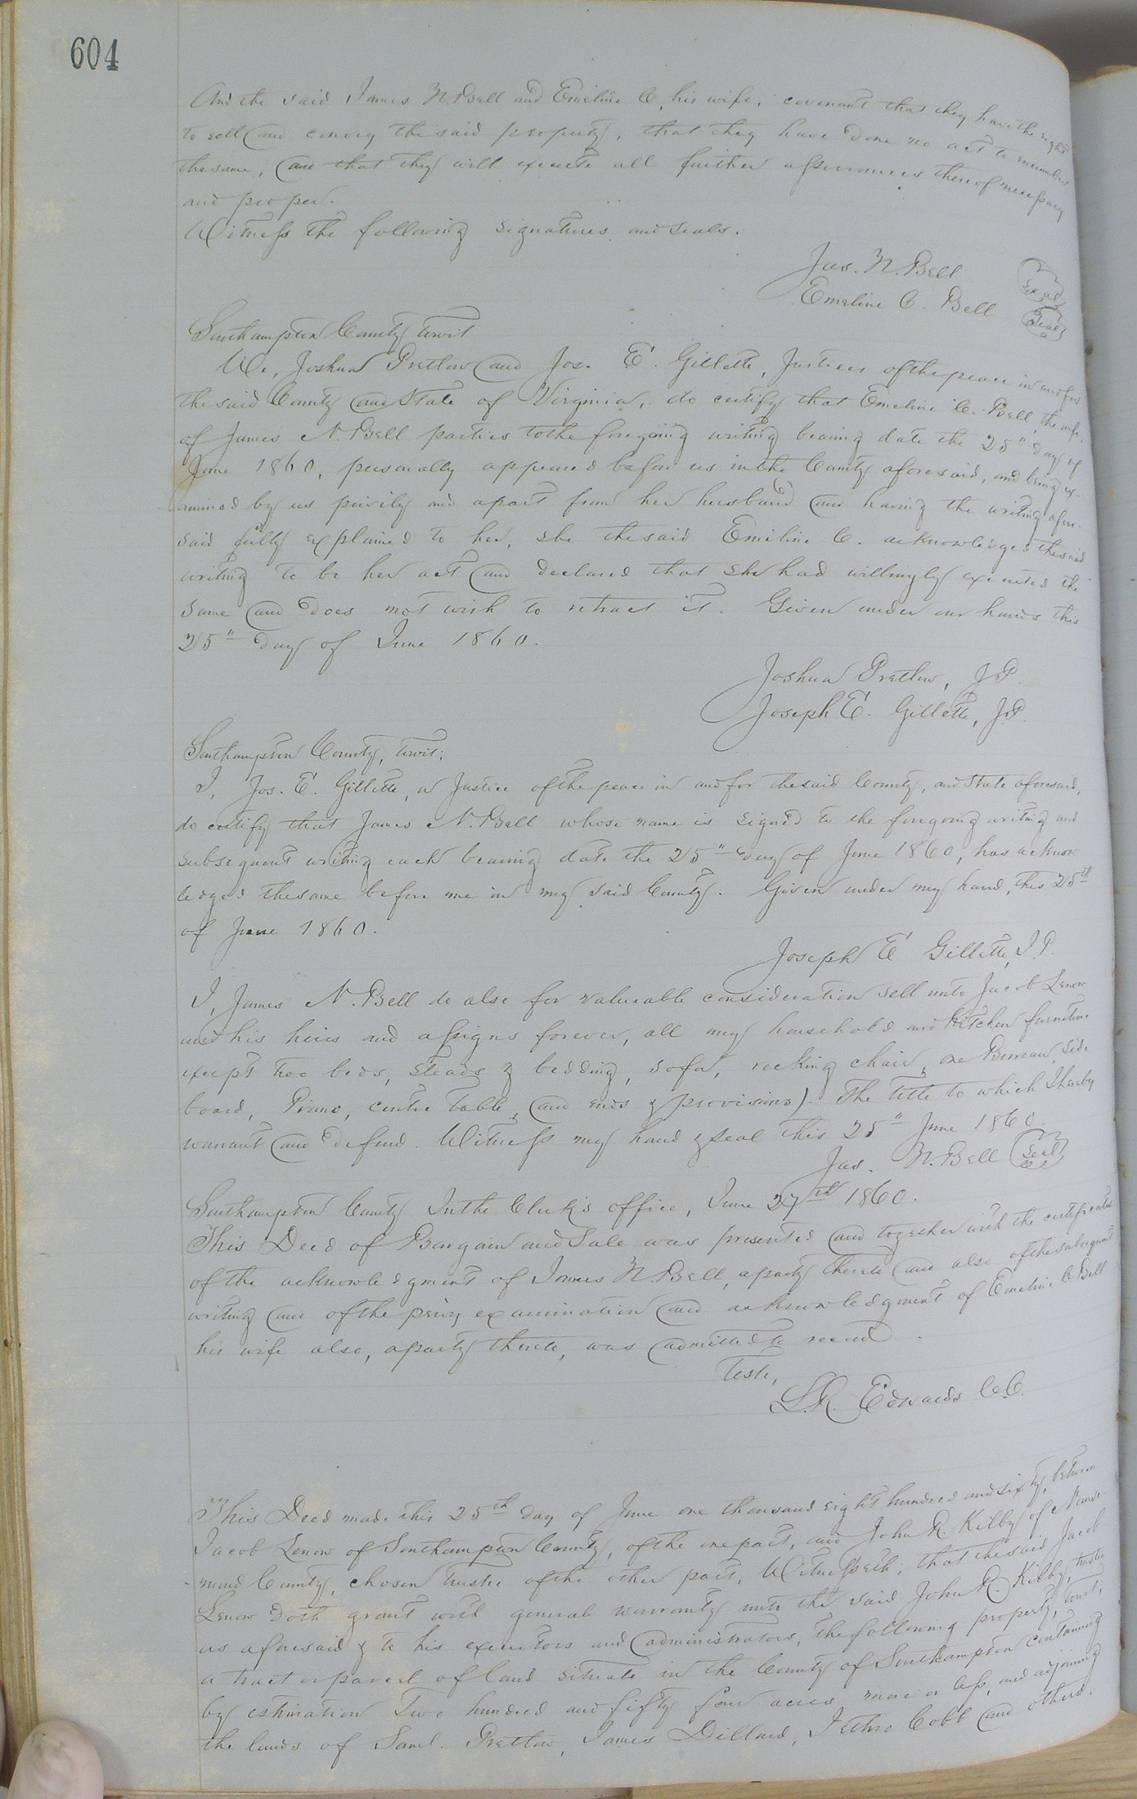 604
And the said James N. Bell and Emeline C, his wife, covenant that they have the right
to sell and convey the said property, that they have done no act to encumber
the same, and that they will execute all further assurances thereof necessary
and proper.
Witness the following signatures and seals.
Jas. N. Bell Seal
Emeline C. Bell Seal
Southampton County towit
We, Joshua Pretlow and Jos. E. Gillette, Justices of the peace in and for
the said County and State of Virginia, do certify that Emeline C. Bell, the wife
of James N. Bell parties to the foregoing writing bearing date the 25" day of
June 1860, personally appeared before us in the County aforesaid, and being ex-
amined by us privily and apart from her husband and having the writing afore-
said fully explained to her, she the said Emeline C. acknowledged the said
writing to be her act and declared that she had willingly executed the
same and does not wish to retract it. Given under our hands this
25" day of June 1860.
Joshua Pretlow, J.P.
Joseph E. Gillette, J.P.
Southampton County, towit;
I, Jos. E. Gillette, a Justice of the peace in and for the said County, and State aforesaid,
do certify that James N. Bell whose name is signed to the foregoing writing and
subsequent writing each bearing date the 25" day of June 1860, has acknow
ledged the same before me in my said County. Given under my hand, this 25th
of June 1860.
Joseph E Gillette, J.P.
I, James N. Bell do also for valuable consideration sell unto Jacob Lenow
and his heirs and assigns forever, all my household and kitchen furniture
except two beds, steads & bedding, sofa, rocking chair, one Bureau, side
board, Piano, centre table, and & provisions). The title to which I hereby
warrant and defend. Witness my hand & seal this 25" June 1860
Jas. N. Bell Seal
Southampton County In the Clerk's office, June 27th 1860.
This Deed of Bargain and Sale was presented and together with the certificates
of the acknowledgment of James N. Bell, a party thereto and also of the subsequent
writing and of the privy examination and acknowledgment of Emeline C. Bell
his wife also, a party thereto, was admitted to record
Teste,
L. R. Edwards C.C.
This Deed made this 25th day of June one thousand eight hundred and sixty, between
Jacob Lenow of Southampton County, of the one part, and John R. Kilby of Nanse-
mond County, chosen trustee of the other part, Witnesseth, that the said Jacob
Lenow doth grant with general warranty unto the said John R. Kilby, trustee
as aforesaid & to his executors and administrators, the following property, towit;
a tract or parcel of land situate in the County of Southampton containing
by estimation Two hundred and fifty four acres more or less, and adjoining
the lands of Saml. Pretlow, James Dillard, Jethro Cobb and others.